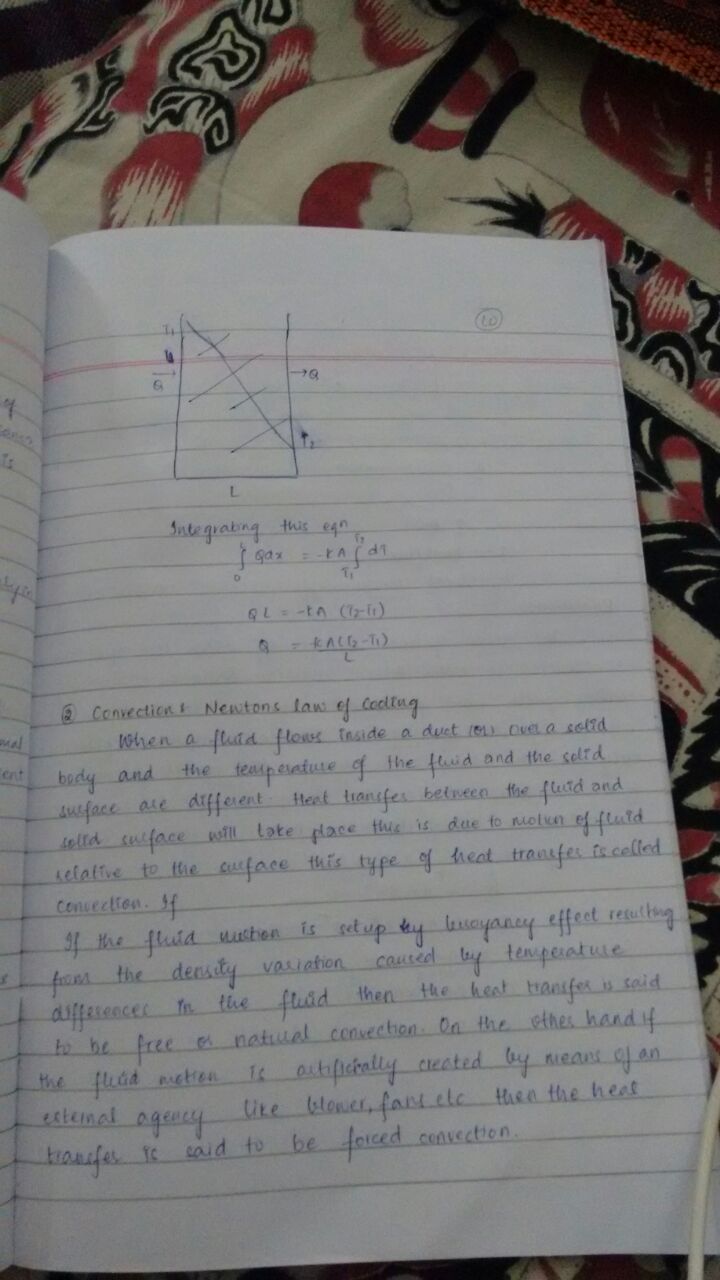 10
T₁
Q
→Q
T₂
L
Integrating this eqn
∫₀ᴸ Qdx = -kA ∫_T₁^T₂ dT
QL = -kA (T₂-T₁)
Q = kA(T₂-T₁)/L
② Convection & Newtons law of Cooling
When a fluid flows inside a duct (or) over a solid
body and the temperature of the fluid and the solid
surface are different. Heat transfer between the fluid and
solid surface will take place this is due to motion of fluid
relative to the surface this type of heat transfer is called
convection. If
If the fluid motion is setup by buoyancy effect resulting
from the density variation caused by temperature
differences in the fluid then the heat transfer is said
to be free or natural convection. On the other hand if
the fluid motion is artificially created by means of an
external agency like blower, fans etc then the heat
transfer is said to be forced convection.